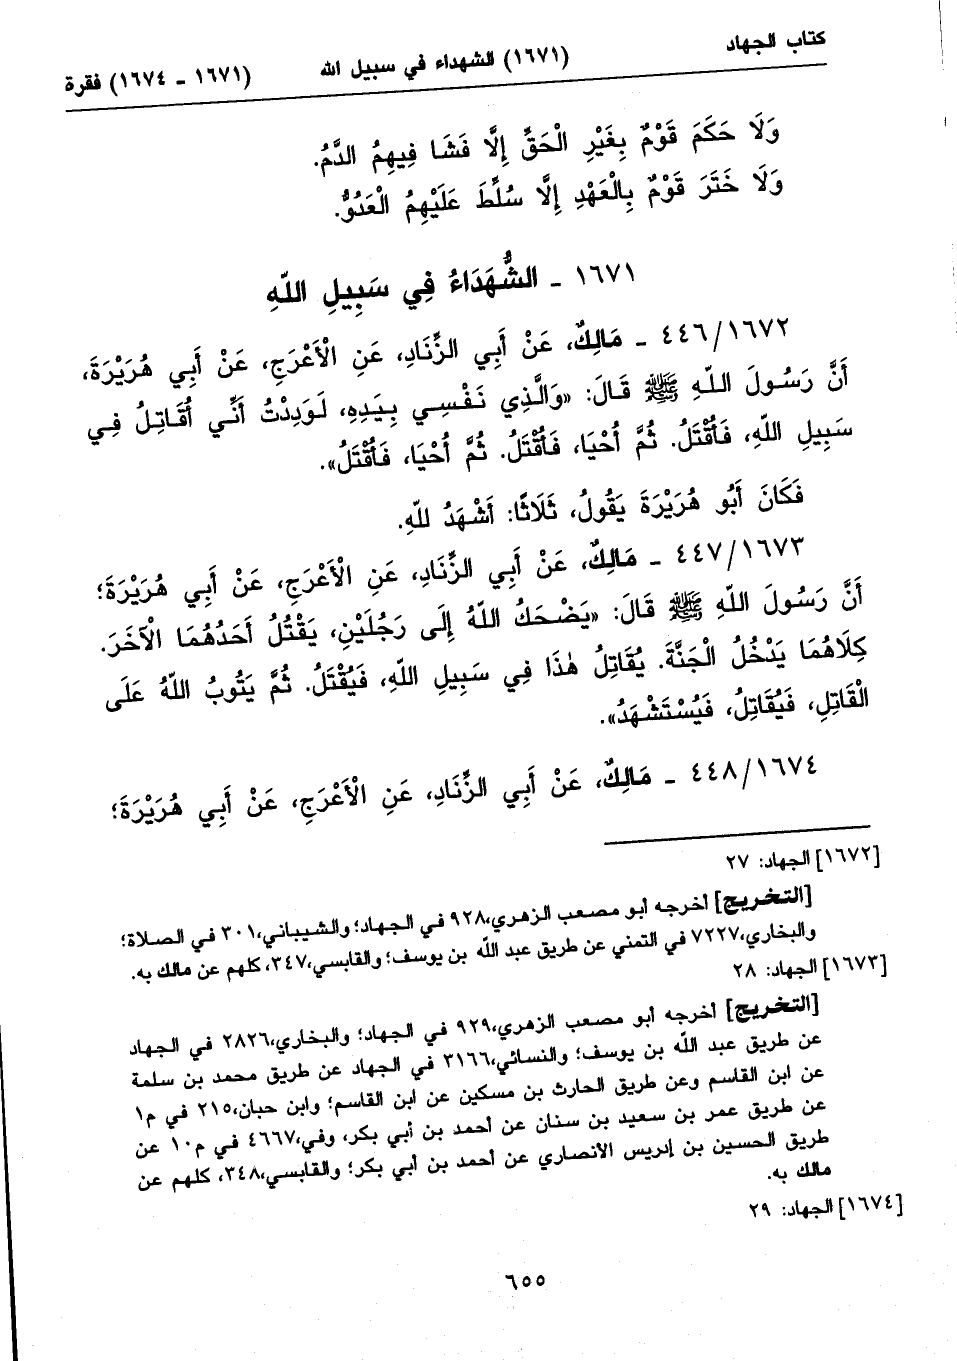 كتاب الجهاد (١٦٧١) الشهداء في سبيل الله (١٦٧١ - ١٦٧٤) فقرة
وَلَا حَكَمَ قَوْمٌ بِغَيْرِ الْحَقِّ إِلَّا فَشَا فِيهِمُ الدَّمُ.
وَلَا خَتَرَ قَوْمٌ بِالْعَهْدِ إِلَّا سُلِّطَ عَلَيْهِمُ الْعَدُوُّ.
١٦٧١ - الشُّهَدَاءُ فِي سَبِيلِ اللّهِ
٤٤٦/١٦٧٢ - مَالِكٌ، عَنْ أَبِي الزِّنَادِ، عَنِ الْأَعْرَجِ، عَنْ أَبِي هُرَيْرَةَ،
أَنَّ رَسُولَ اللّهِ ﷺ قَالَ: «وَالَّذِي نَفْسِي بِيَدِهِ، لَوَدِدْتُ أَنِّي أُقَاتِلُ فِي
سَبِيلِ اللّهِ، فَأُقْتَلُ. ثُمَّ أُحْيَا، فَأُقْتَلُ. ثُمَّ أُحْيَا، فَأُقْتَلُ».
فَكَانَ أَبُو هُرَيْرَةَ يَقُولُ، ثَلَاثًا: أَشْهَدُ للّهِ.
٤٤٧/١٦٧٣ - مَالِكٌ، عَنْ أَبِي الزِّنَادِ، عَنِ الْأَعْرَجِ، عَنْ أَبِي هُرَيْرَةَ؛
أَنَّ رَسُولَ اللّهِ ﷺ قَالَ: «يَضْحَكُ اللّهُ إِلَى رَجُلَيْنِ، يَقْتُلُ أَحَدُهُمَا الْآخَرَ.
كِلَاهُمَا يَدْخُلُ الْجَنَّةَ. يُقَاتِلُ هٰذَا فِي سَبِيلِ اللّهِ، فَيُقْتَلُ. ثُمَّ يَتُوبُ اللّهُ عَلَى
الْقَاتِلِ، فَيُقَاتِلُ، فَيُسْتَشْهَدُ».
٤٤٨/١٦٧٤ - مَالِكٌ، عَنْ أَبِي الزِّنَادِ، عَنِ الْأَعْرَجِ، عَنْ أَبِي هُرَيْرَةَ؛
[١٦٧٢] الجهاد: ٢٧
[التخريج] أخرجه أبو مصعب الزهري،٩٢٨ في الجهاد؛ والشيباني،٣٠١ في الصلاة؛
والبخاري،٧٢٢٧ في التمني عن طريق عبد الله بن يوسف؛ والقابسي،٣٤٧، كلهم عن مالك به.
[١٦٧٣] الجهاد: ٢٨
[التخريج] أخرجه أبو مصعب الزهري،٩٢٩ في الجهاد؛ والبخاري،٢٨٢٦ في الجهاد
عن طريق عبد الله بن يوسف؛ والنسائي،٣١٦٦ في الجهاد عن طريق محمد بن سلمة
عن ابن القاسم وعن طريق الحارث بن مسكين عن ابن القاسم؛ وابن حبان،٢١٥ في م١
عن طريق عمر بن سعيد بن سنان عن أحمد بن أبي بكر، وفي،٤٦٦٧ في م١٠ عن
طريق الحسين بن إدريس الأنصاري عن أحمد بن أبي بكر؛ والقابسي،٣٤٨، كلهم عن
مالك به.
[١٦٧٤] الجهاد: ٢٩
٦٥٥